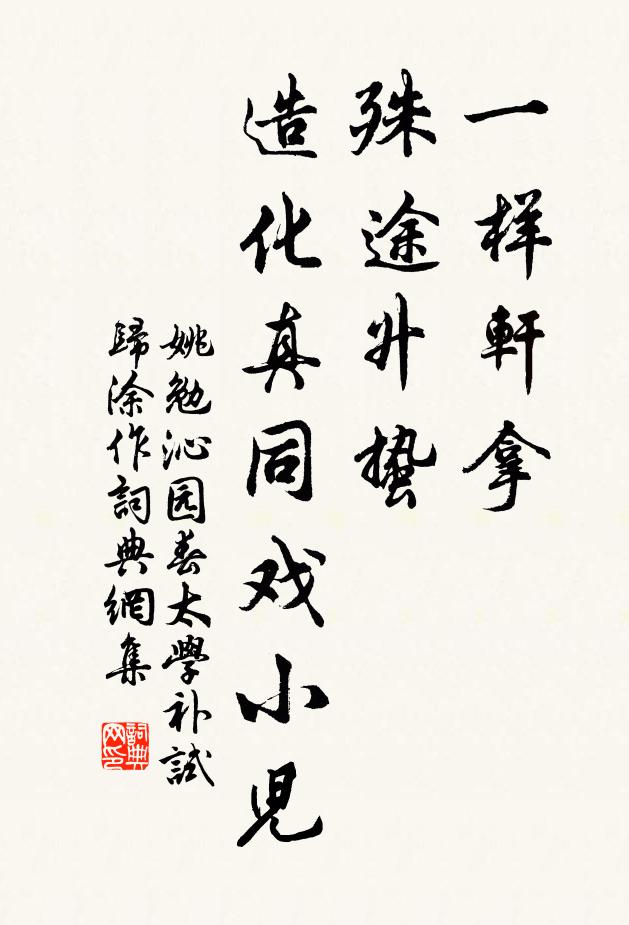 一样軒拿
殊途升蟄
造化真同戏小児
姚勉沁园春太學补試
歸涂作詞典網集
詞典网印